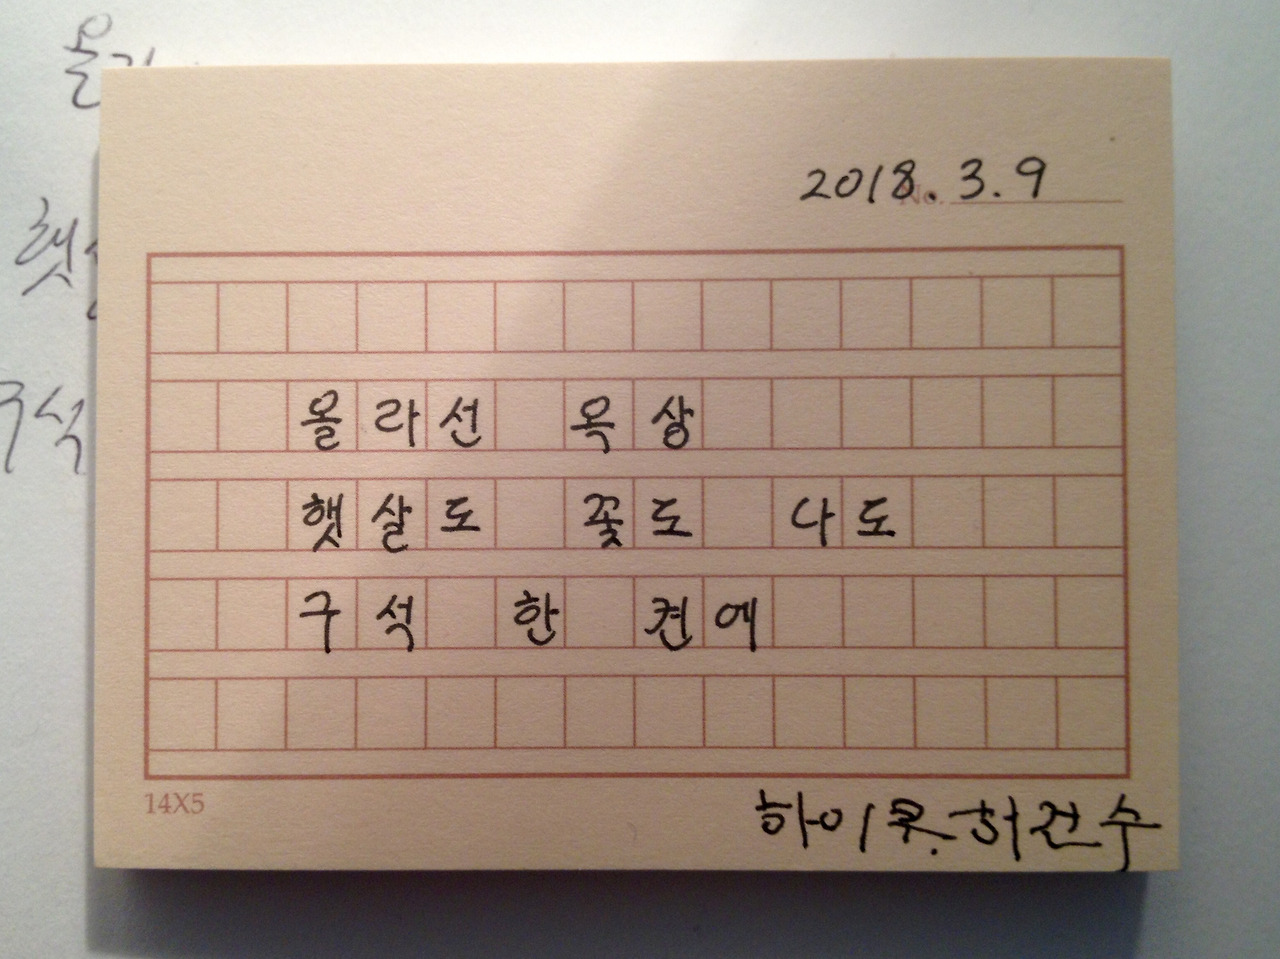 올
햇
구석
2018. 3. 9
No.
올라선 옥상
햇살도 꽃도 나도
구석 한 켠에
14X5
하이쿠. 허건수